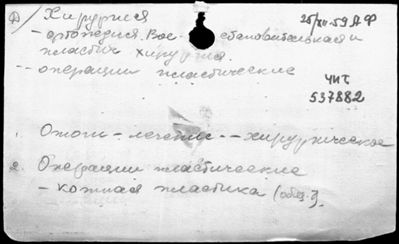 Хирургия 25/XII-59 АФ
- ортопедия. Вос- становительная и
пластич хирургия.
- операции пластические
ЧИТ
537882
1. Отоп - лечение - - хирургическое
2. Операции пластические
- кожная пластика (общ.).